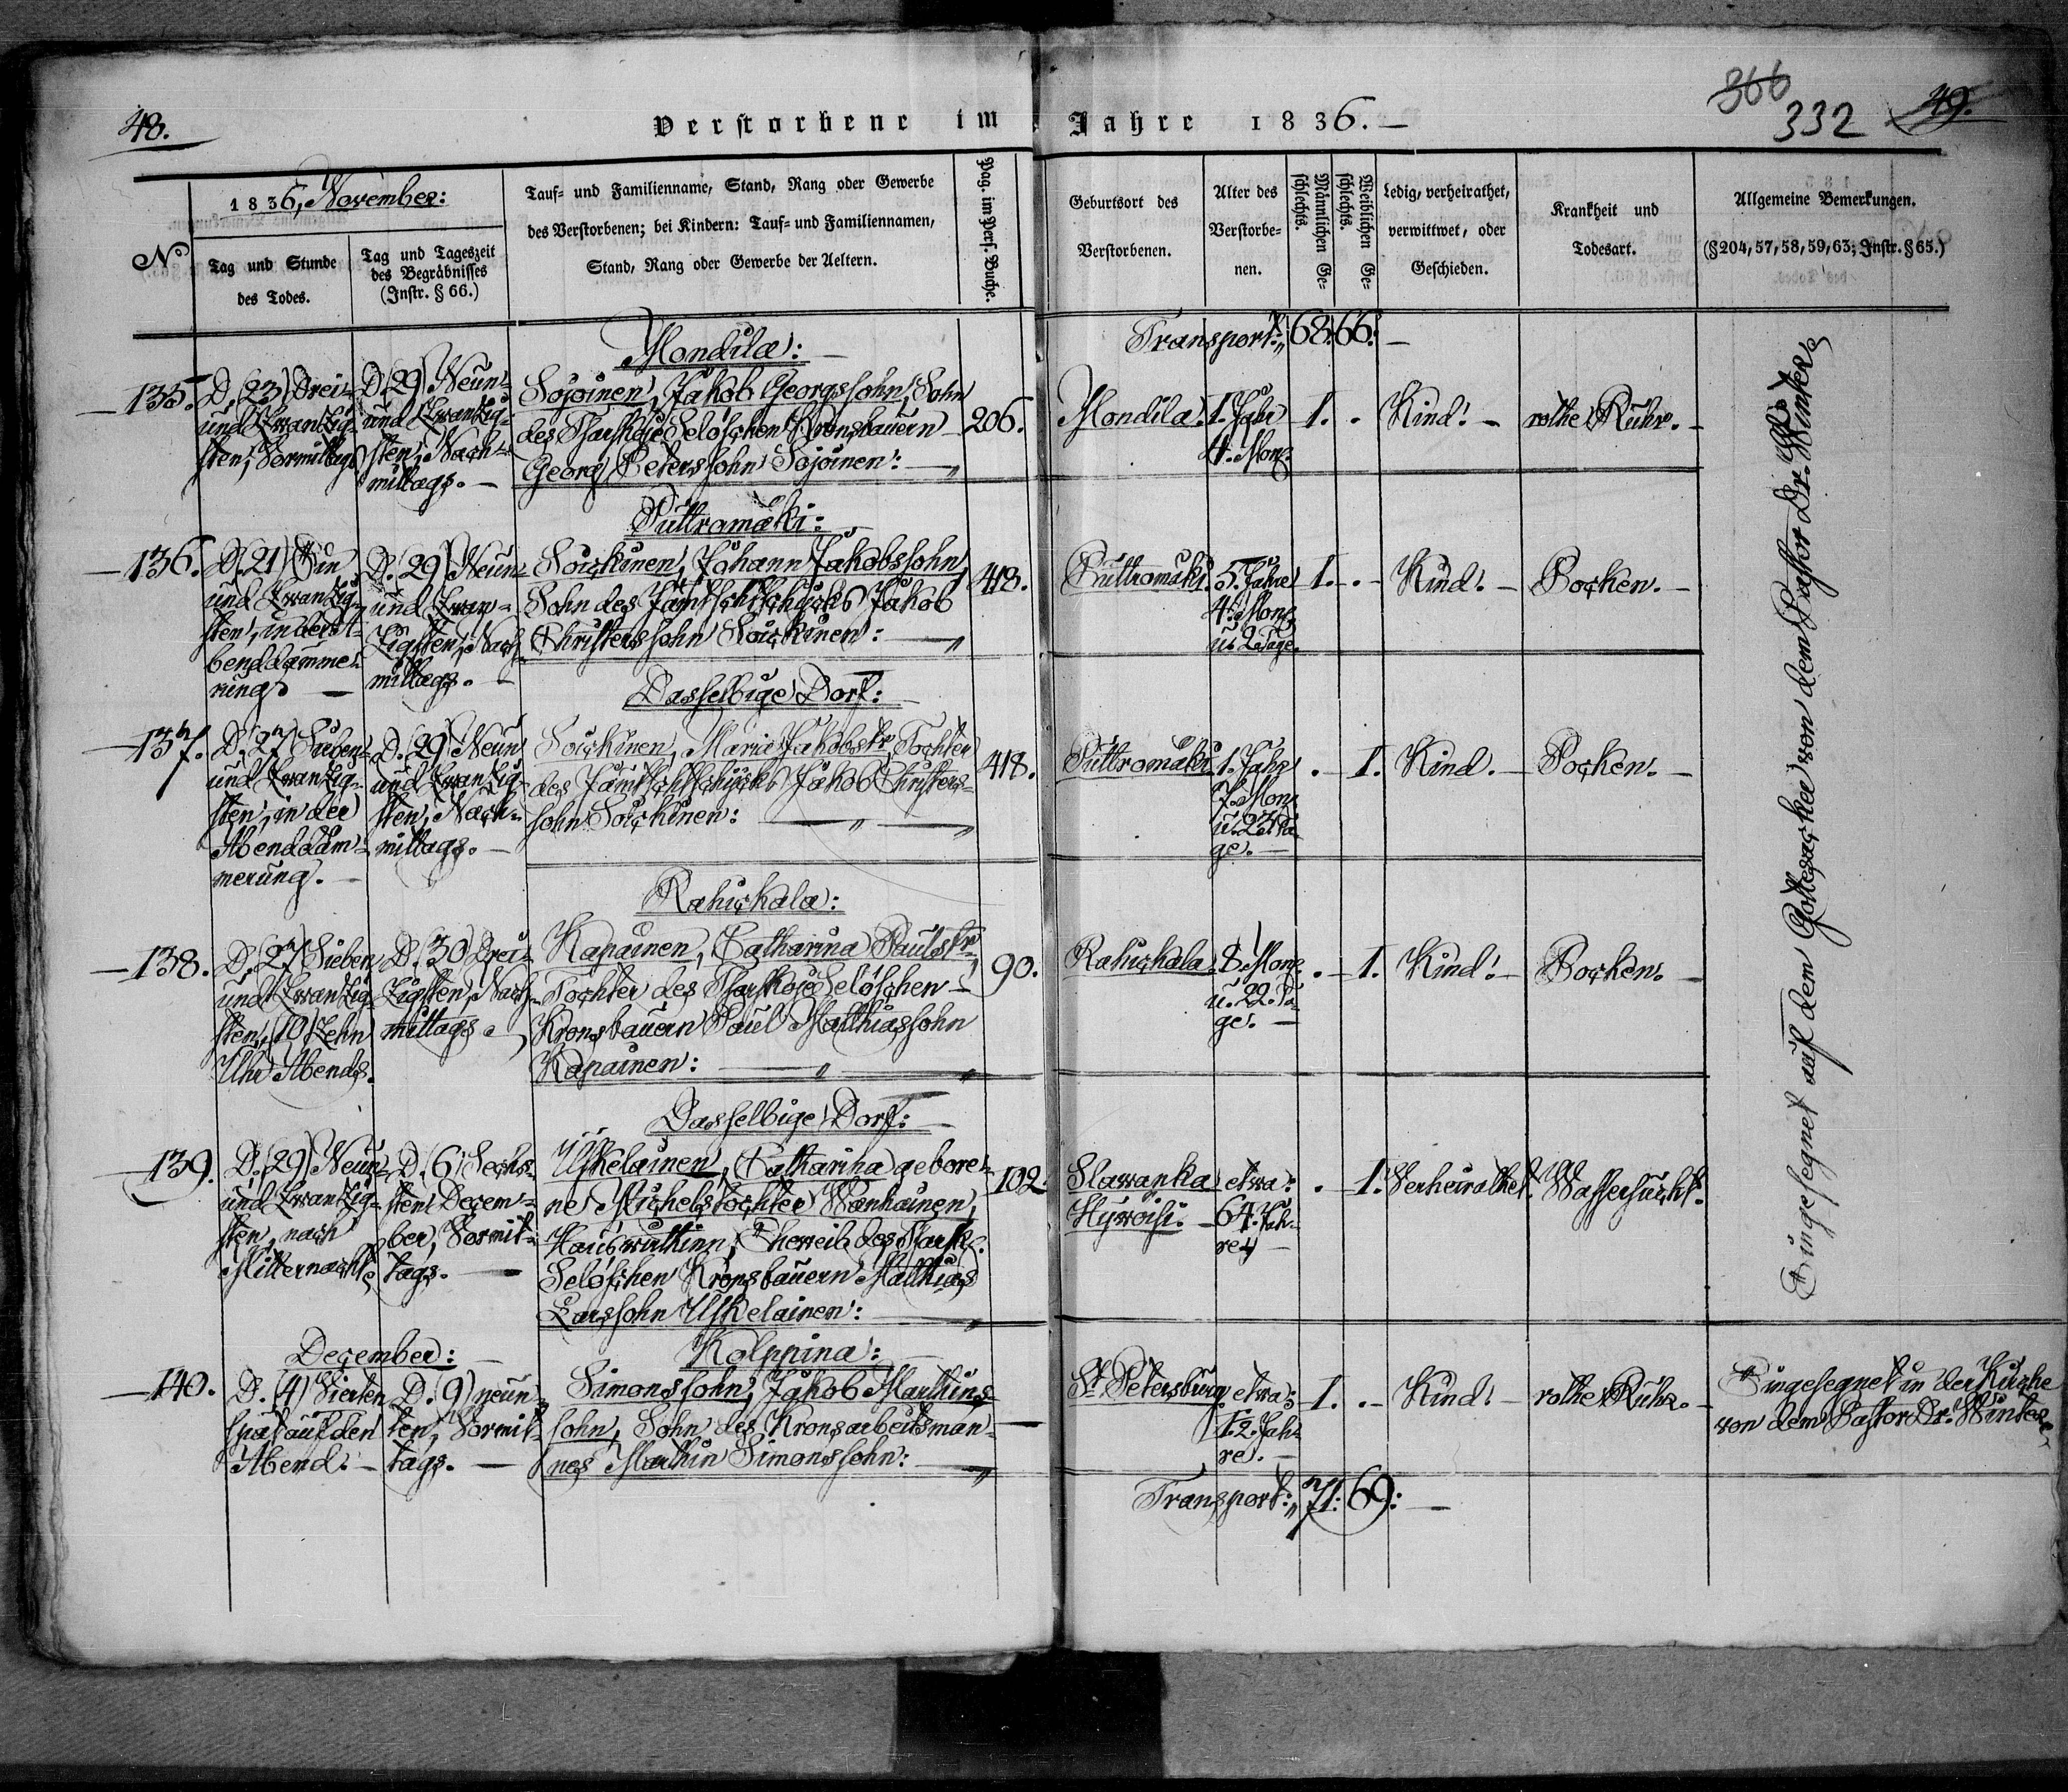 48.
Verstorbene im Jahre 1836.
366
332
49.
No
1836, November:
Tag und Stunde
des Todes.
Tag und Tageszeit
des Begräbnisses
(Instr. § 66.)
Tauf- und Familienname, Stand, Rang oder Gewerbe
des Verstorbenen; bei Kindern: Tauf- und Familiennamen,
Stand, Rang oder Gewerbe der Aeltern.
Pag. im Pers. Buche.
Geburtsort des
Verstorbenen.
Alter des
Verstorbe-
nen.
Männlichen Ge-
schlechts.
Weiblichen Ge-
schlechts.
Ledig, verheirathet,
verwittwet, oder
Geschieden.
Krankheit und
Todesart.
Allgemeine Bemerkungen.
(§ 204, 57, 58, 59, 63; Instr. § 65.)
Transport: 68. 66.
Mondila:
135.
D. (23) Drei-
und zwanzig-
sten, Vormittags
D. (29) Neun-
und zwanzig-
sten, Nach-
mittags.
Sojoinen, Jakob Georgssohn, Sohn
des Tsarskoje Seloschen Kronsbauern
Georg Peterssohn Sojoinen:
206.
Mondila.
1. Jahr
4. Mon.
1.
Kind.
rothe Ruhr.
Puttromäki:
136.
D. (21) Ein
und zwanzig-
sten, in der A-
benddämme-
rung.
D. (29) Neun
und zwan-
zigsten, Nach-
mittags.
Soickinen, Johann Jakobssohn,
Sohn des Jämtschtschicks Jakob
Christerssohn Soickinen:
418.
Puttromäki.
5. Jahre
4. Mon.
u. 2. Tage.
1.
Kind.
Pocken.
Dasselbige Dorf:
137.
D. (27) Sieben-
und zwanzig-
sten, in der
Abenddäm-
merung.
D. (29) Neun
und zwanzig-
sten, Nach-
mittags.
Soickinen, Maria Jakobstr., Tochter
des Jämtschtschicks Jakob Christers-
sohn Soickinen:
418.
Puttromäki
1. Jahr
7. Mon.
u. 23. Ta-
ge.
1.
Kind.
Pocken.
Rahickala:
138.
D. (27) Sieben
und zwanzig-
sten, (10) Zehn
Uhr Abends.
D. (30) Drei-
zigsten, Nach-
mittags.
Kapainen, Catharina Paulstr.,
Tochter des Tsarskoje Seloschen
Kronsbauern Paul Matthiassohn
Kapainen:
90.
Rahickala.
8. Mon.
u. 22. Ta-
ge.
1.
Kind.
Pocken.
Dasselbige Dorf:
139.
D. (29) Neun-
und zwanzig-
sten, nach
Mitternacht.
D. (6) Sechs-
sten Decem-
ber, Vormit-
tags.
Uskelainen, Catharina gebore-
ne Michelstochter Wanhainen,
Hauswirthinn, Eheweib des Tsarsk.
Seloschen Kronsbauern Matthias
Larssohn Uskelainen:
102.
Slawanka
Hywöisi.
etwa:
64. Jah-
re.
1.
Verheirathet.
Wassersucht.
Eingesegnet auf dem Gottesacker von dem Pastor Dr. Winter.
December:
Kolppina:
140.
D. (4) Vierten
spät auf den
Abend.
D. (9) neun-
ten, Vormit-
tags.
Simonssohn, Jakob Marthins-
sohn, Sohn des Kronsarbeitsman-
nes Marthin Simonssohn:
St. Petersburg
etwa:
1. 2. Jah-
re.
1.
Kind.
rothe Ruhr.
Eingesegnet in der Kirche
von dem Pastor Dr. Winter.
Transport: 71. 69: